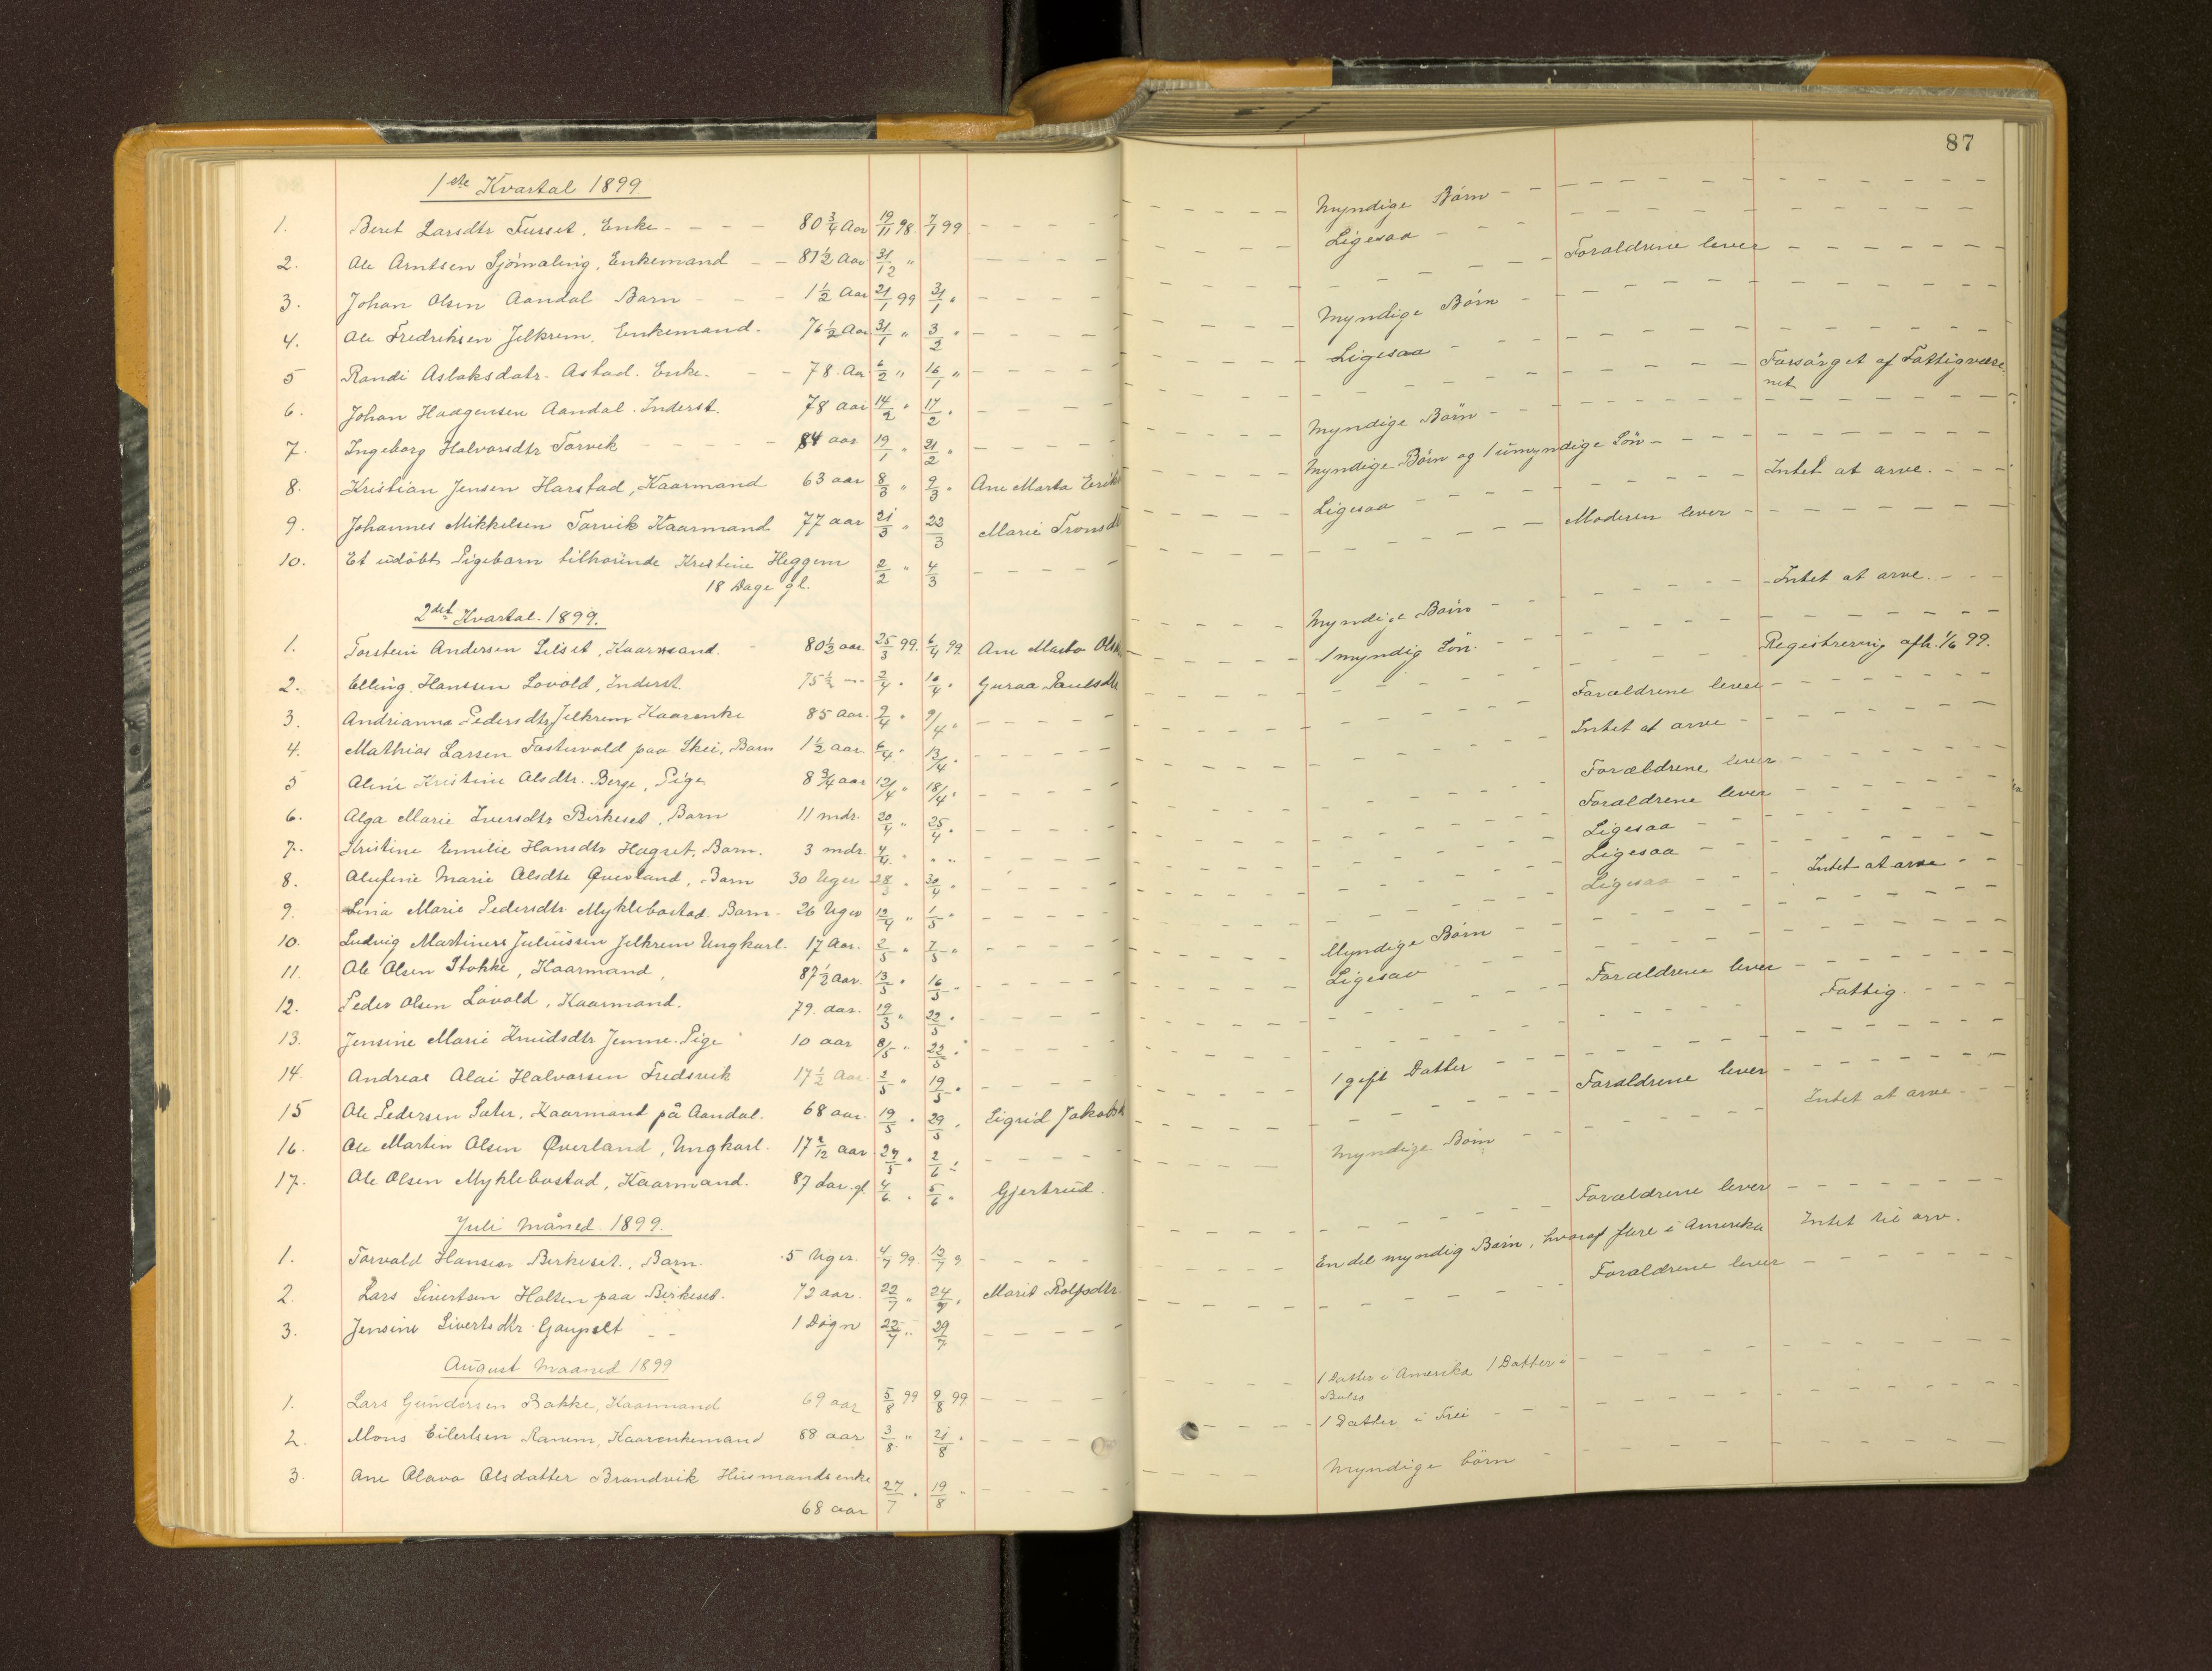 87
1ste Kvartal 1899
1. Beret Larsdtr Fusset, Enke - - - - 80 3/4 Aar 19/11 98. 7/1 99 - - - - Myndige Børn - - - -
2. Ole Arntsen Sjömaling, Enkemand - - 81 1/2 Aar 31/12 " - - - - Ligesaa - - - -
3. Johan Olsen Aandal Barn - - - 1 1/2 Aar 21/1 99 31/1 " - - - - Foraldrene lever - - - -
4. Ole Fredriksen Jelkrem, Enkemand. 76 1/2 Aar. 31/1 " 3/2 " - - - - Myndige Børn - - - -
5 Randi Aslaksdatr. Astad. Enke. - - 78. Aar 6/2 " 16/1 " - - - - Ligesaa - - - -
6. Johan Haagensen Aandal. Inderst. 78 aar 14/2 " 17/2 " - - - - Forsørget af Fattigvæse-
net
7. Ingeborg Halvorsdtr Torvik - - - - 84 aar 19/1 " 21/2 " - - - - Myndige Børn - - - -
8. Kristian Jensen Harstad, Kaarmand 63 aar 8/3 " 9/3 " Ane Marta Eriks Myndige Børn og 1 umyndige Sön - - - -
9. Johannes Mikkelsen Torvik Kaarmand 77 aar 21/3 " 22/3 Marie Tronsdt Ligesaa - - - - Intet at arve. - - -
10. Et udöbt Pigebarn tilhørende Kristine Heggem 2/2 " 4/3 - - - - Moderen lever - - - -
18 Dage gl.
2det Kvartal. 1899.
1. Torstein Andersen Silset, Kaarmand. - 80 1/2 aar. 25/3 99. 6/4 99. Ane Marta Ols - - - - Intet at arve. - - -
2. Elling Hansen Lovold, Inderst. 75 1/2 -"- 2/4 " 10/4 " Guraa Paulsdtr Myndige Børn - - - -
3. Andrianna Pedersdtr Jelkrem Kaarenke 85 aar. 9/4 " 9/4 " - - - - 1 myndig Sön. - - - Registrering afh. 1/6 99.
4. Mathias Larsen Fostervold paa Skei, Barn 1 1/2 aar. 6/4 " 13/4 " - - - - Foraldrene lever - - - -
5 Aline Kristine Olsdtr. Berge, Pige 8 3/4 aar 12/4 " 18/4 " - - - - Intet at arve - - - -
6. Alga Marie Iversdtr Birkeset, Barn 11 mdr. 20/4 " 25/4 " - - - - Foraldrene lever - - - -
7. Kristine Emilie Hansdtr Hagset, Barn. 3 mdr. 4/4 " " " - - - - Foraldrene lever - - - -
8. Alufine Marie Olsdtr Øverland, Barn 30 Uger 28/3 " 30/4 " - - - - Ligesaa - - - -
9. Lina Marie Pedersdtr Myklebostad. Barn - 26 Uger 12/4 " 1/5 " - - - - Ligesaa - - - -
10. Ludvig Martinus Juliussen Jelkrem Ungkarl. 17 Aar. 2/5 " 7/5 " - - - - Ligesaa - - - Intet at arve - -
11. Ole Olsen Stokke, Kaarmand, 87 1/2 aar. 13/5 " 16/5 - - - - - Myndige Børn - - - -
12. Peder Olsen Lovold, Kaarmand. 79. aar. 19/3 " 22/5 " - - - - Ligesaa - - - -
13. Jensine Marie Knudsdtr Jemne. Pige 10 aar 8/5 " 22/5 " - - - - Foraldrene lever - - - -
14. Andreas Olai Halvorsen Fredsvik 17 1/2 Aar. 2/5 " 19/5 " - - - - Fattig. - - - -
15 Ole Pedersen Sater. Kaarmand på Aandal. 68 aar. 19/5 " 29/5 " Sigrid Jakobsd 1 gift Datter - - - -
16. Ole Martin Olsen Øverland, Ungkarl. 17 2/12 aar. 27/5 " 2/6 " - - - - Foraldrene lever - - - -
17. Ole Olsen Myklebostad, Kaarmand. 87 aar. gl 4/6 " 5/6 " Gjertrud. Myndige Børn - - Intet at arve - -
Juli Måned. 1899.
1. Torvald Hansen Birkeset., Barn. 5 Uger. 4/7 99. 12/7 9. - - - - Foraldrene lever - - - -
2. Lars Sivertsen Holten paa Birkeset. 72 aar. 22/7 " 24/7 " Marit Rolfsdtr. En del myndig Børn, hvoraf flere i Amerika Intet til arv.
3. Jensine Sivertsdtr Gaupset - - 1 Døgn 22/7 " 29/7 - - - - Foraldrene lever - - - -
August Maaned 1899
1. Lars Gundersen Bakke, Kaarmand 69 aar 5/8 99 9/8 99. - - - - 1 Datter i Amerika 1 Datter i
Bolsø
2. Mons Eilertsen Ranem, Kaarenkemand 88 aar 3/8 " 21/8 " - - - - 1 Datter i Frei - - - -
3. Ane Olava Olsdatter Brandvik Husmandsenke 27/7 " 19/8 " - - - - Myndige börn - - - -
68 aar